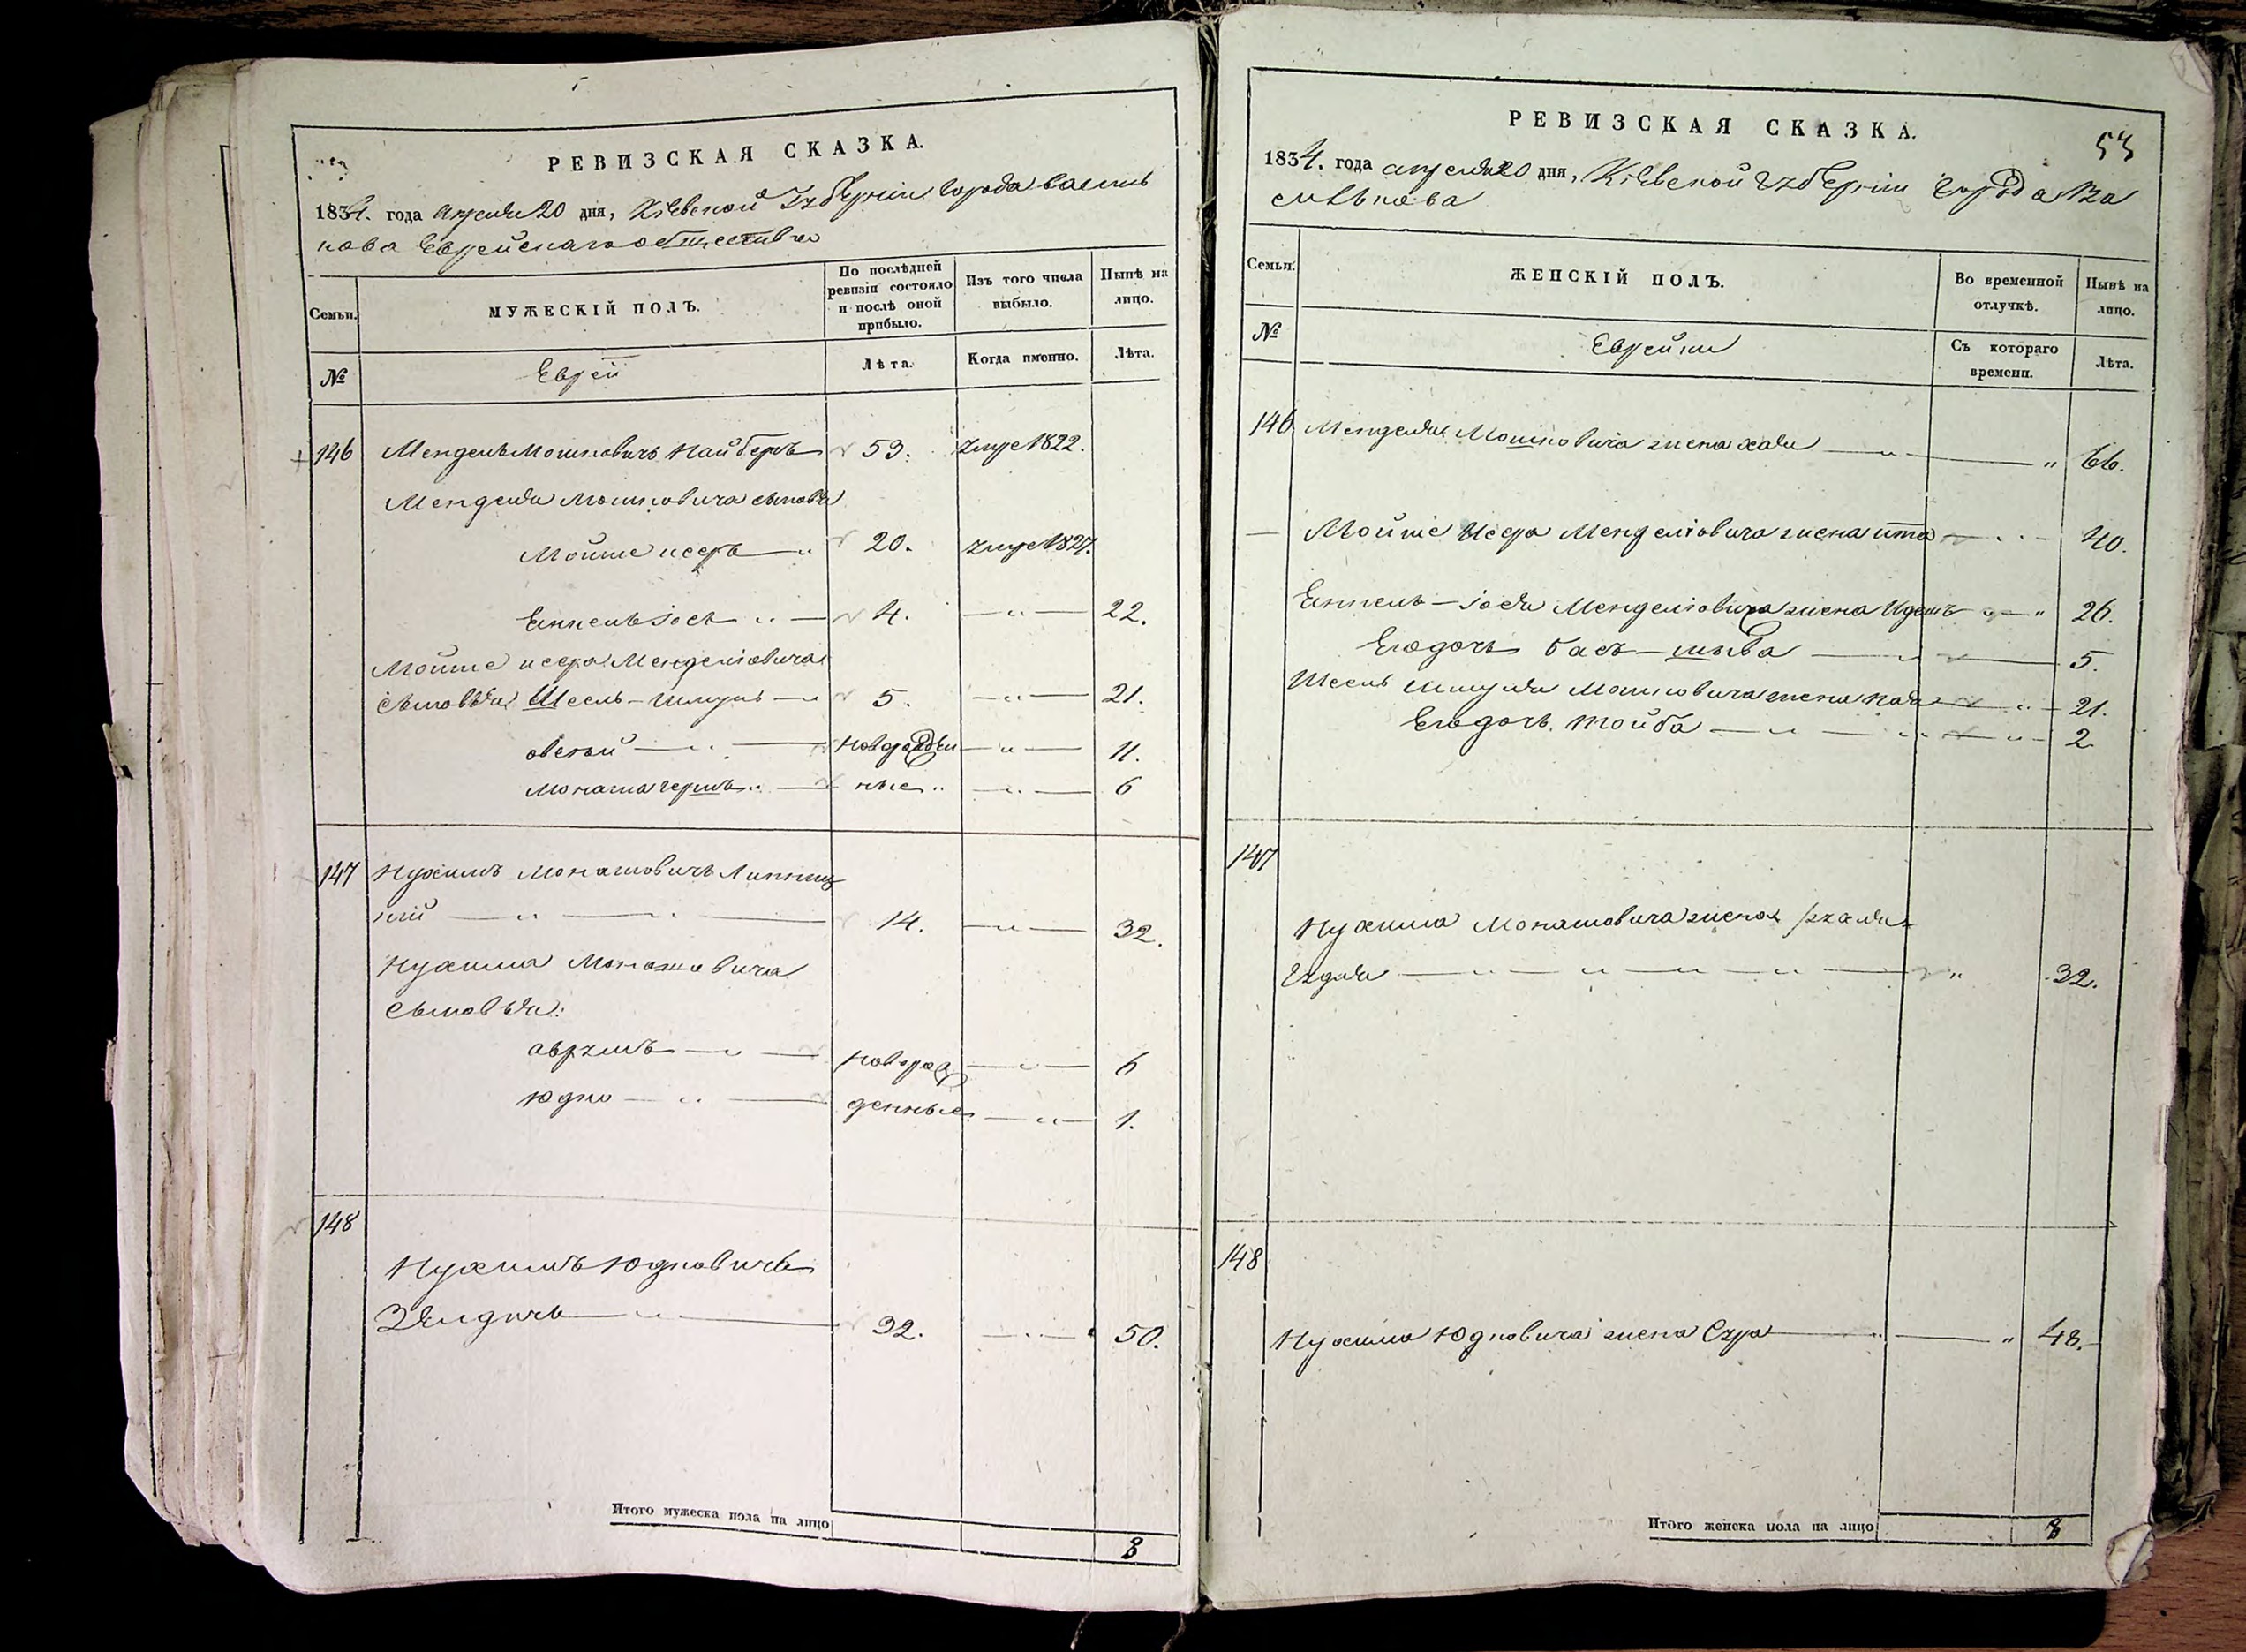 РЕВИЗСКАЯ СКАЗКА.
1834. года апреля 20 дня, Кіевской Губерніи города Василь
кова Еврейскаго общества
Семьи.
МУЖЕСКІЙ ПОЛЪ.
По послѣдней ревизіи состояло и послѣ оной прибыло.
Изъ того числа выбыло.
Нынѣ на лицо.
№
Еврей
Лѣта.
Когда именно.
Лѣта.
146 Мендель Мошковичъ 53. умре 1822.
Менделя Мошковича сыновья
Мойше исеръ 20. умре 1827.
4. 22.
Мойше исера Менделіовича
сыновья Шесль-шмуль 5. 21.
овсѣй новорожден 11.
Монаша гершъ ные 6
147 Нухимъ Монашовичъ Липниц
кій 14. 32.
Нухима Монашовича
сыновья:
аврумъ новорож 6
юдко денные 1.
148
Нухимъ Юдковичъ
32. 50.
Итого мужеска пола на лицо 8
РЕВИЗСКАЯ СКАЗКА.
53
1834. года апреля 20 дня, Кіевской Губерніи города Ва
силькова
Семьи.
ЖЕНСКІЙ ПОЛЪ.
Во временной отлучкѣ.
Нынѣ на лицо.
№
Еврейки
Съ котораго времени.
Лѣта.
146 Менделя Мошковича жена хая 66.
Мойше Исера Менделіовича жена ита 40.
Менделіовича жена 26.
Егодочь бася-шива 5.
Шесль Шмуля Мошковича жена 21.
Егодочь тойба 2
147
Нухима Монашовича жена рухля
гудля 32.
148
Нухима Юдковича жена Сура 48.
Итого женска пола на лицо 8